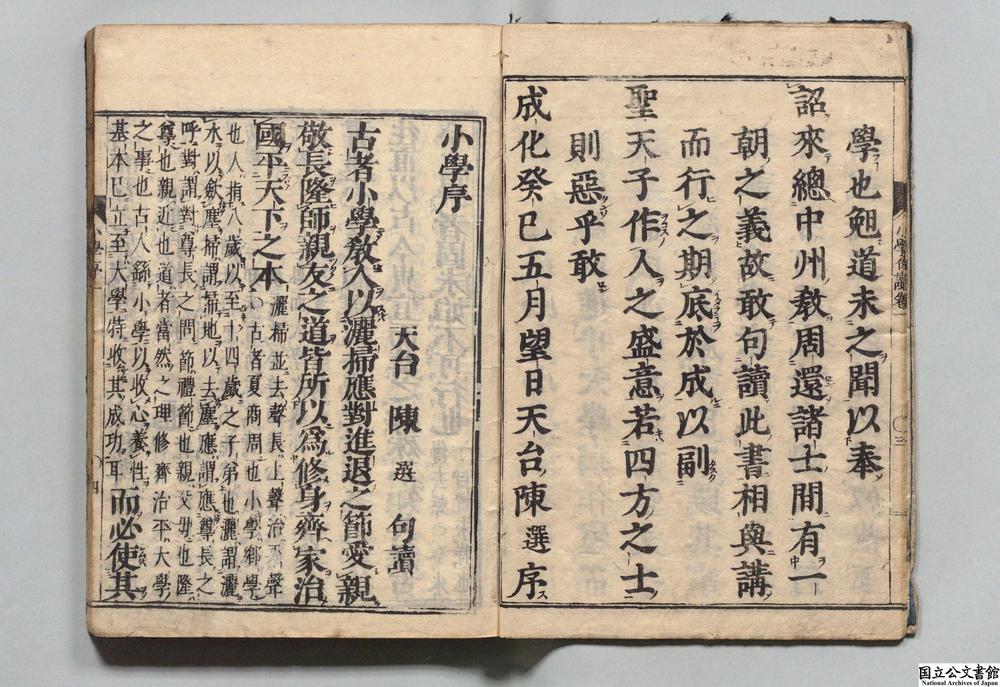 學也勉道未之聞以奉
詔來總中州教周還諸士間有一
朝之義故敢句讀此書相與講
而行之期底於成以副
聖天子作人之盛意若四方之士
則惡乎敢
成化癸巳五月望日天台陳選序
小學序
天台 陳 選 句讀
古者小學教人以灑掃應對進退之節愛親
敬長隆師親友之道皆所以爲修身齊家治
國平天下之本
灑掃並去聲長上聲治平聲
○古者夏商周也小學鄉學
也人指八歲以至十四歲之子弟也灑謂灑
水以斂塵掃謂帚地以去塵應謂應尊長之
呼對謂對尊長之問節禮節也親父母也隆
尊也親近也道者當然之理修齊治平大學
之事也古人繇小學以收心養性
基本已立至大學特收其成功耳
而必使其
国立公文書館
National Archives of Japan